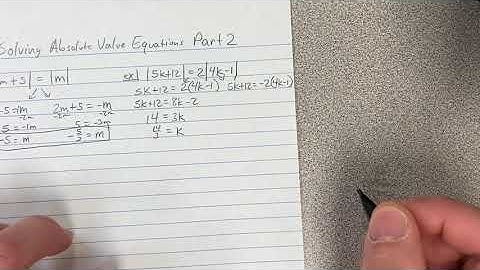 Solving Absolute Value Equations Part 2
m + 5| = |m|
+5 = m
-2m
5 = -1m
-5 = m
2m + 5 = -m
-2m -2m
5 = -3m
-5/3 = m
ex| |5k+12| = 2|4k-1|
5k+12 = 2(4k-1) 5k+12 = -2(4k-1)
5k+12 = 8k - 2
14 = 3k
14/3 = k